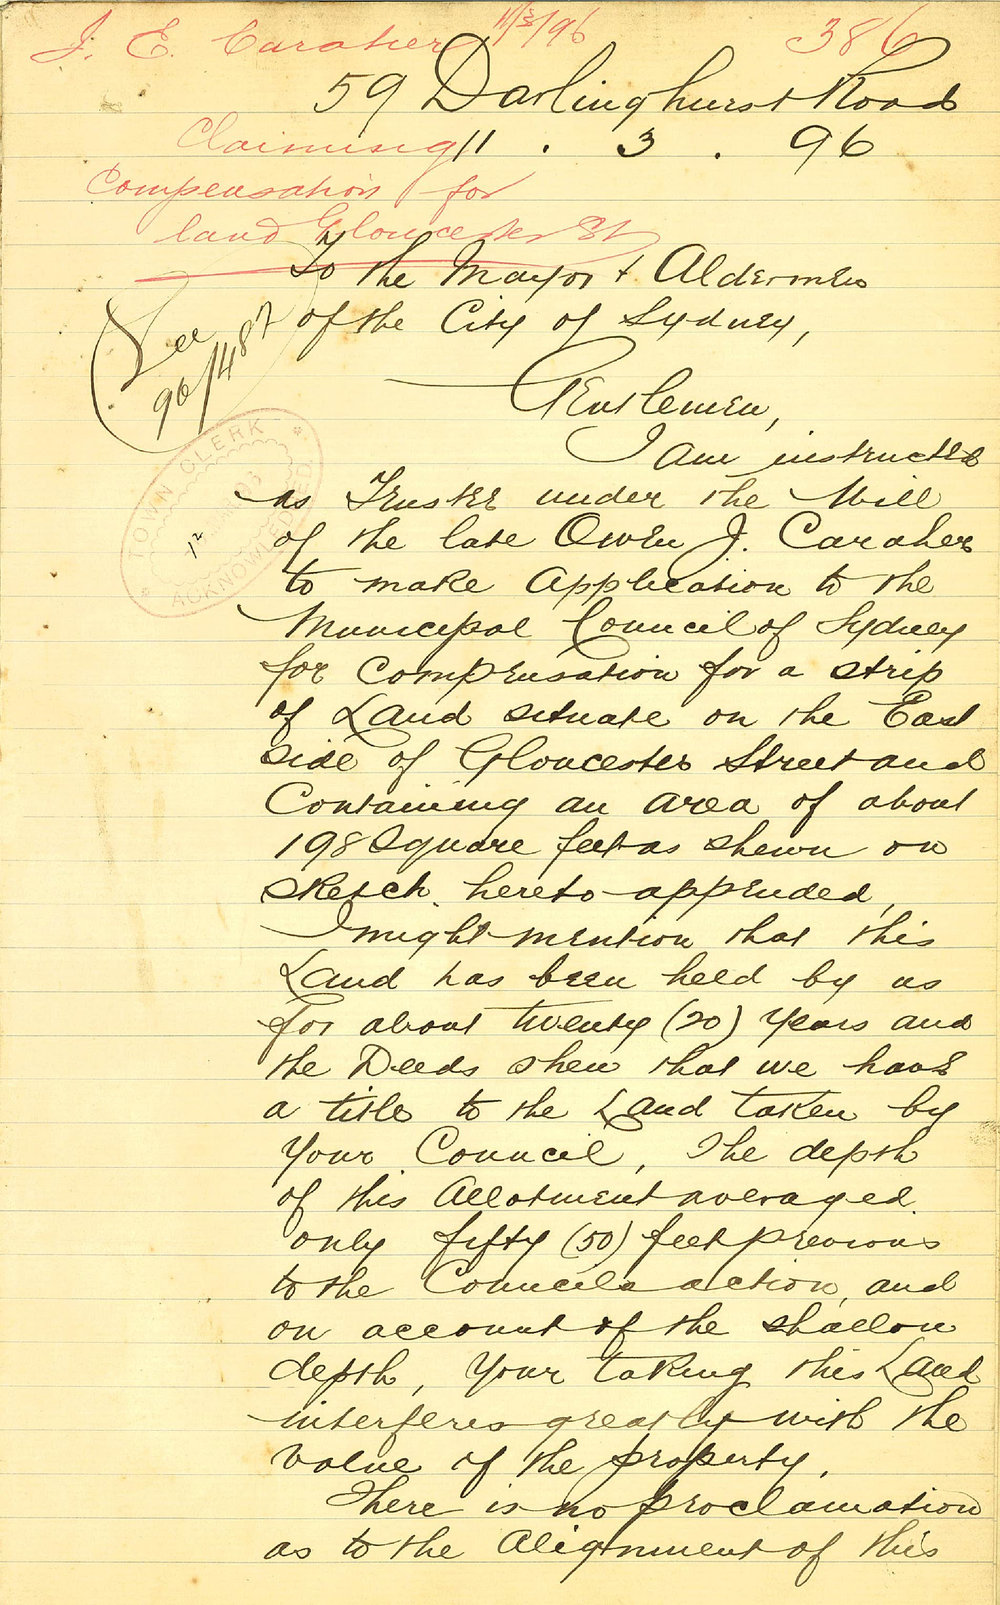 J. E. Caraher 11/3/96 386
59 Darlinghurst Road
Claiming 11 . 3 . 96
Compensation for
land Gloucester St
To the Mayor + Aldermen
of the City of Sydney,
See
96/487
Gentlemen,
TOWN CLERK
12
ACKNOWLEDGED
I am instructed
as Trustee under the Will
of the late Owen J. Caraher
to make Application to the
Municipal Council of Sydney
for Compensation for a strip
of Land situate on the East
side of Gloucester Street and
Containing an area of about
198 Square feet as shewn on
Sketch hereto appended,
I might mention that this
Land has been held by us
for about twenty (20) years and
the Deeds shew that we have
a title to the Land taken by
Your Council, The depth
of this Allotment averaged
only fifty (50) feet previous
to the Councils action, and
on account of the shallow
depth, Your taking this Land
interferes greatly with the
value of the property.
There is no proclamation
as to the Alignment of this